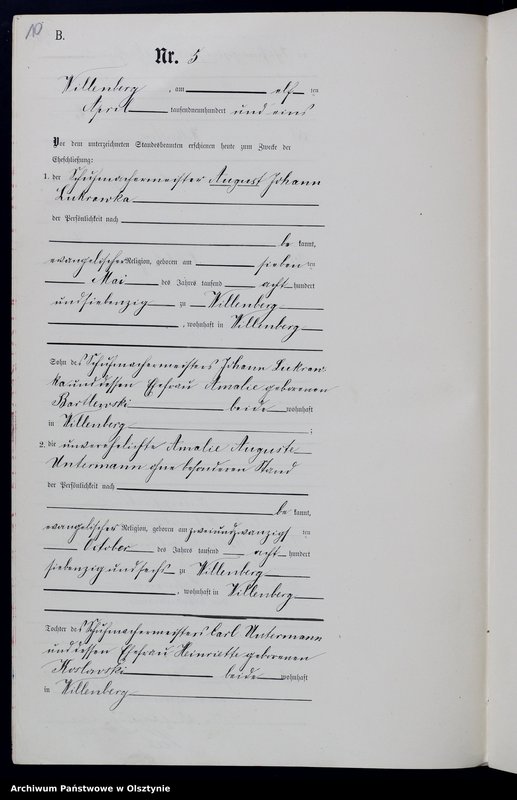 10
B.
Nr. 5
Willenberg, am elf ten
April tausendneunhundert und eins
Vor dem unterzeichneten Standesbeamten erschienen heute zum Zwecke der
Eheschließung:
1. der Schuhmachermeister August Johann
Lukrawka
der Persönlichkeit nach
be kannt,
evangelischer Religion, geboren am sieben ten
Mai des Jahres tausend acht hundert
undsiebenzig zu Willenberg
, wohnhaft in Willenberg
Sohn des Schuhmachermeisters Johann Lukraw-
ka und dessen Ehefrau Amalie geborenen
beide wohnhaft
in Willenberg ;
2. die unverehelichte Amalie Auguste
Untermann ohne besonderen Stand
der Persönlichkeit nach
be kannt,
evangelischer Religion, geboren am zweiundzwanzigs ten
October des Jahres tausend acht hundert
siebenzig und sechs zu Willenberg
, wohnhaft in Willenberg
Tochter des Schuhmachermeisters Carl Untermann
und dessen Ehefrau Heinriette geborenen
Koslowski beide wohnhaft
in Willenberg
Archiwum Państwowe w Olsztynie